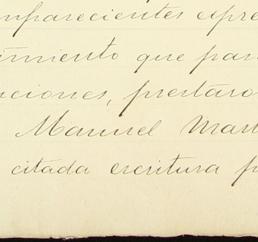 mparecientes expre
imiento que par
uciones, prestaro
Manuel Mart
citada escritura p